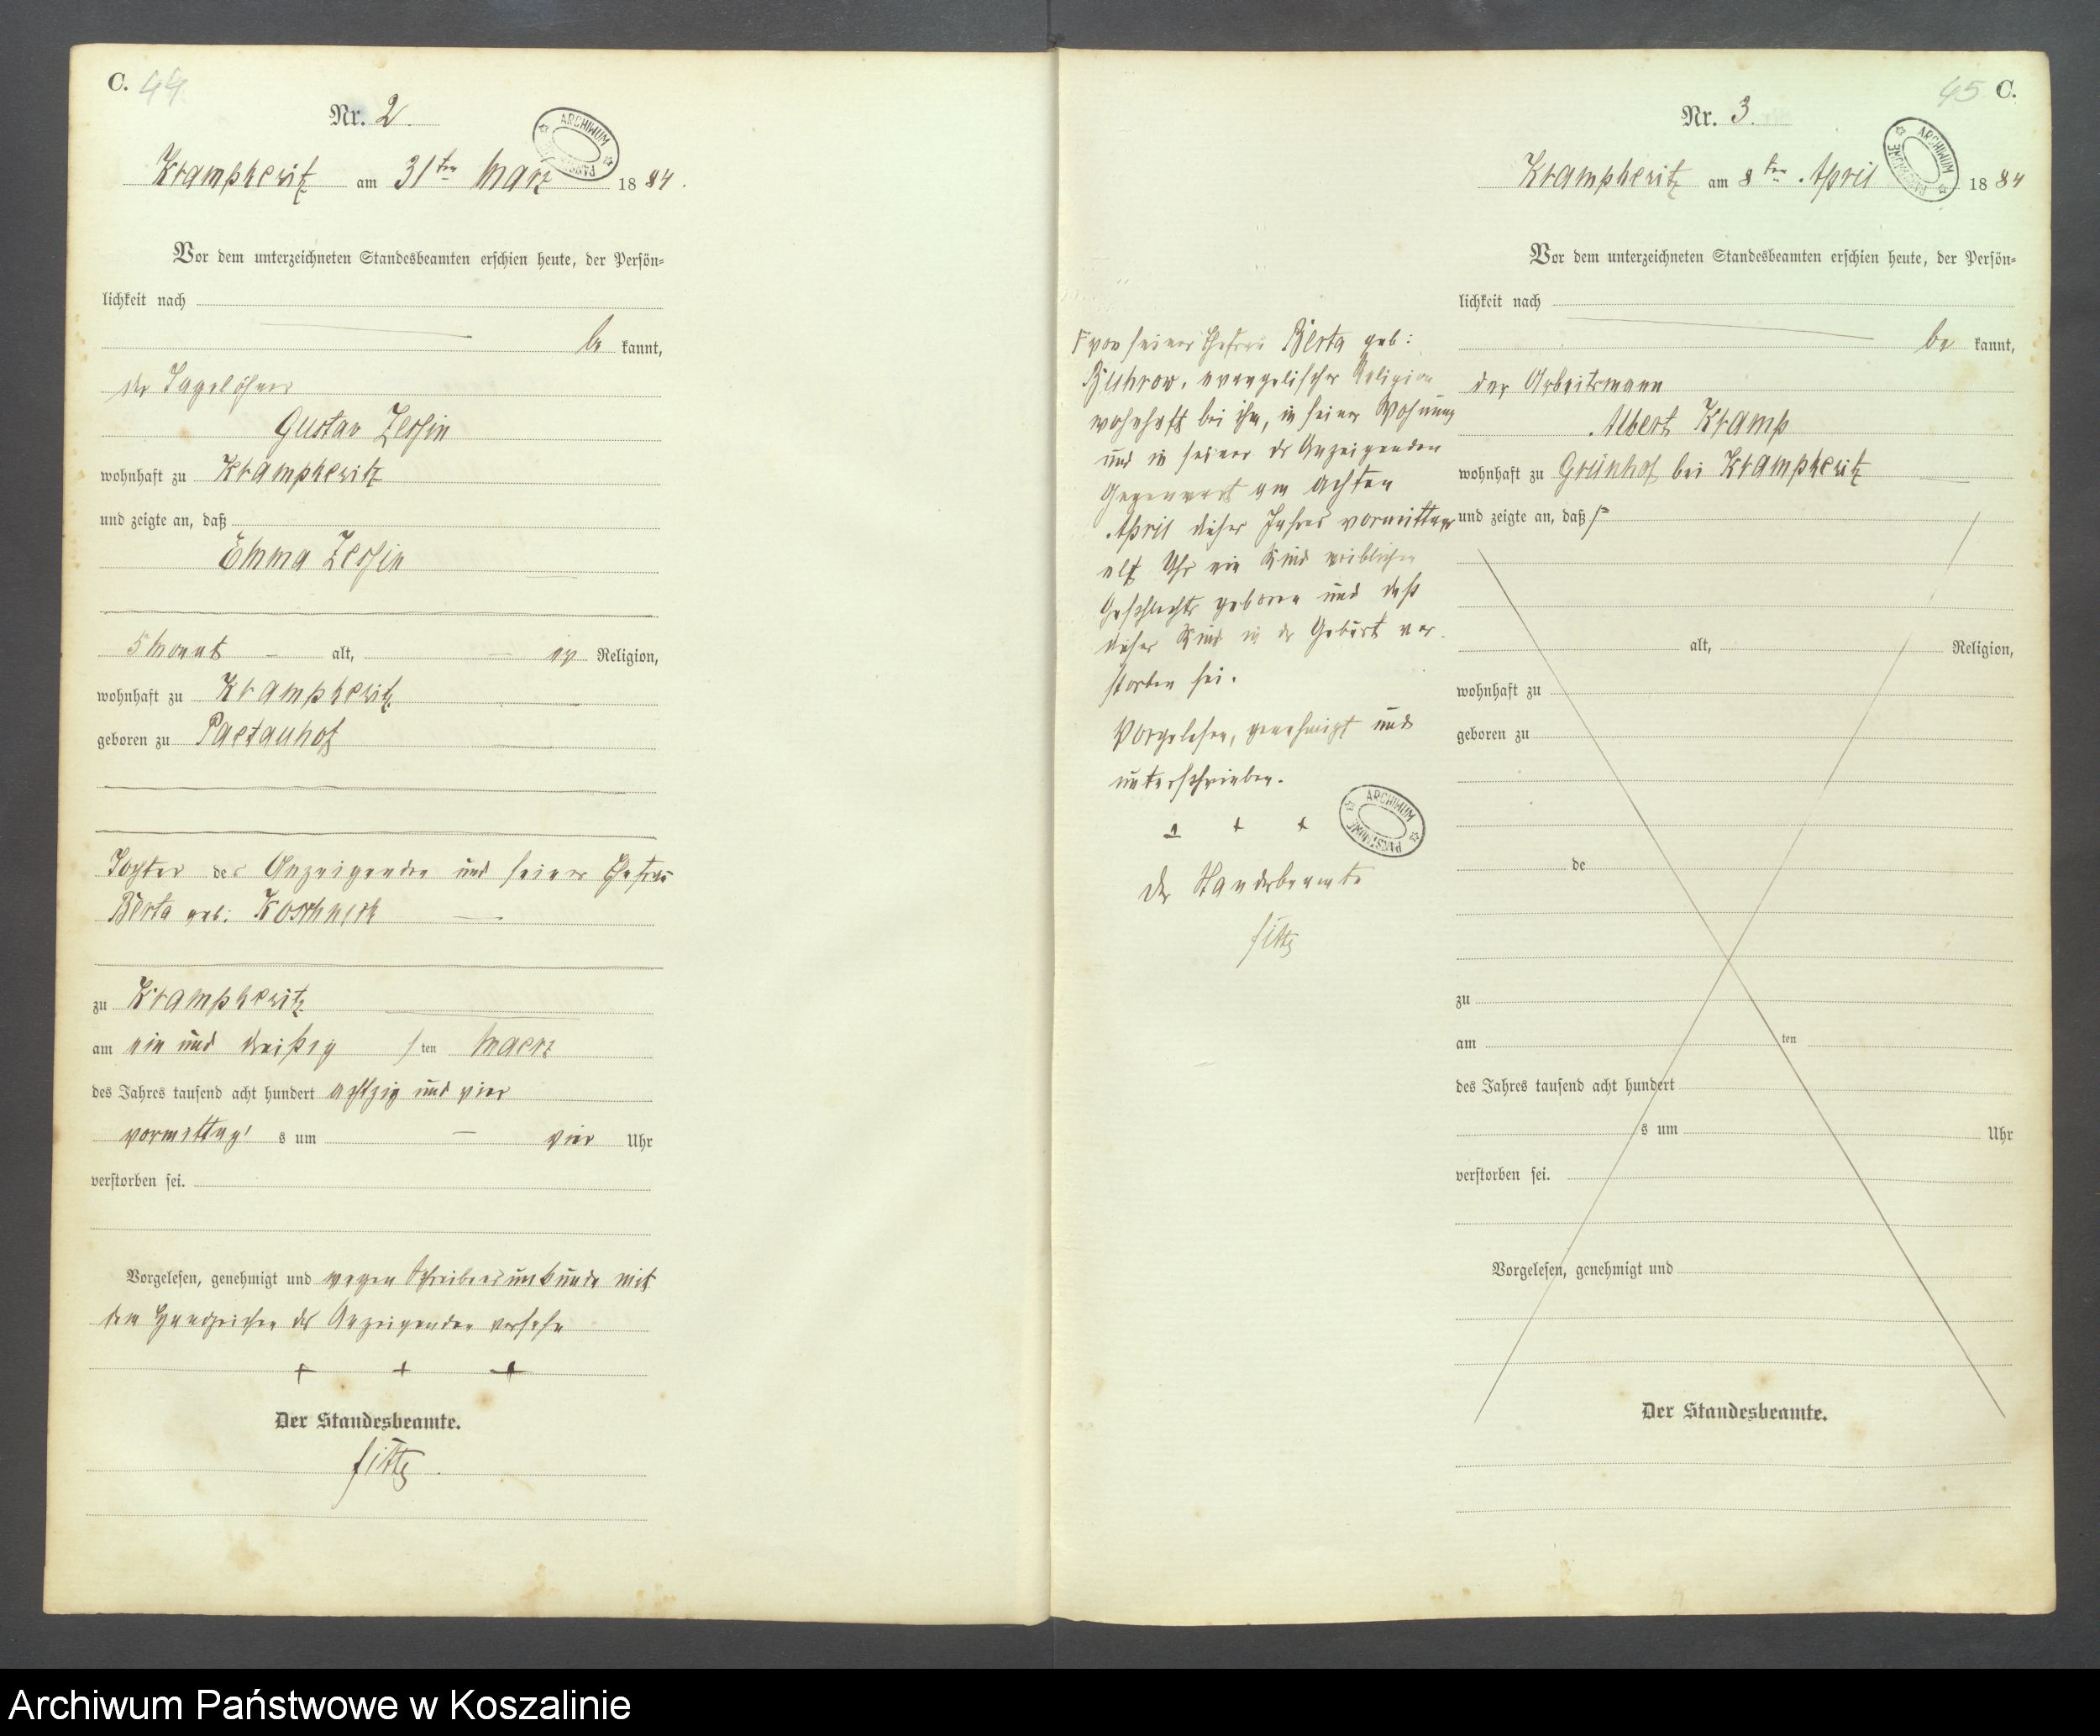 C. 44
Nr. 2.
ARCHIWUM PAŃSTWOWE
Krampkewitz am 31ten März 1884.
Vor dem unterzeichneten Standesbeamten erschien heute, der Persön-
lichkeit nach
be kannt,
der Tagelöhner
Gustav Zessin
wohnhaft zu Krampkewitz
und zeigte an, daß
Emma Zessin
5 Monat alt, ev Religion,
wohnhaft zu Krampkewitz
geboren zu
Tochter des Anzeigenden und seiner Ehefrau
Berta geb:
zu Krampkewitz
am ein und dreißig ten Maerz
des Jahres tausend acht hundert achtzig und vier
vormittag s um vier Uhr
verstorben sei.
Vorgelesen, genehmigt und wegen Schreibensunkunde mit
dem Handzeichen des Anzeigenden versehn
+ + +
Der Standesbeamte.
45 C.
Nr. 3.
ARCHIWUM PAŃSTWOWE
Krampkewitz am 8ten April 1884
Vor dem unterzeichneten Standesbeamten erschien heute, der Persön-
lichkeit nach
be kannt,
der Arbeitsmann
Albert Kramp
wohnhaft zu Grünhof bei Krampkewitz
und zeigte an, daß
von seiner Ehefrau Berta geb:
Buhrow, evangelischer Religion
wohnhaft bei ihm, in seiner Wohnung
und in seiner des Anzeigenden
Gegenwart am achten
April dieses Jahres vormittags
elf Uhr ein Kind weiblichen
Geschlechts geboren und daß
dieses Kind in der Geburt ver-
storben sei.
Vorgelesen, genehmigt und
unterschrieben.
+ + +
ARCHIWUM PAŃSTWOWE
Der Standesbeamte
alt, Religion,
wohnhaft zu
geboren zu
de
zu
am ten
des Jahres tausend acht hundert
s um Uhr
verstorben sei.
Vorgelesen, genehmigt und
Der Standesbeamte.
Archiwum Państwowe w Koszalinie